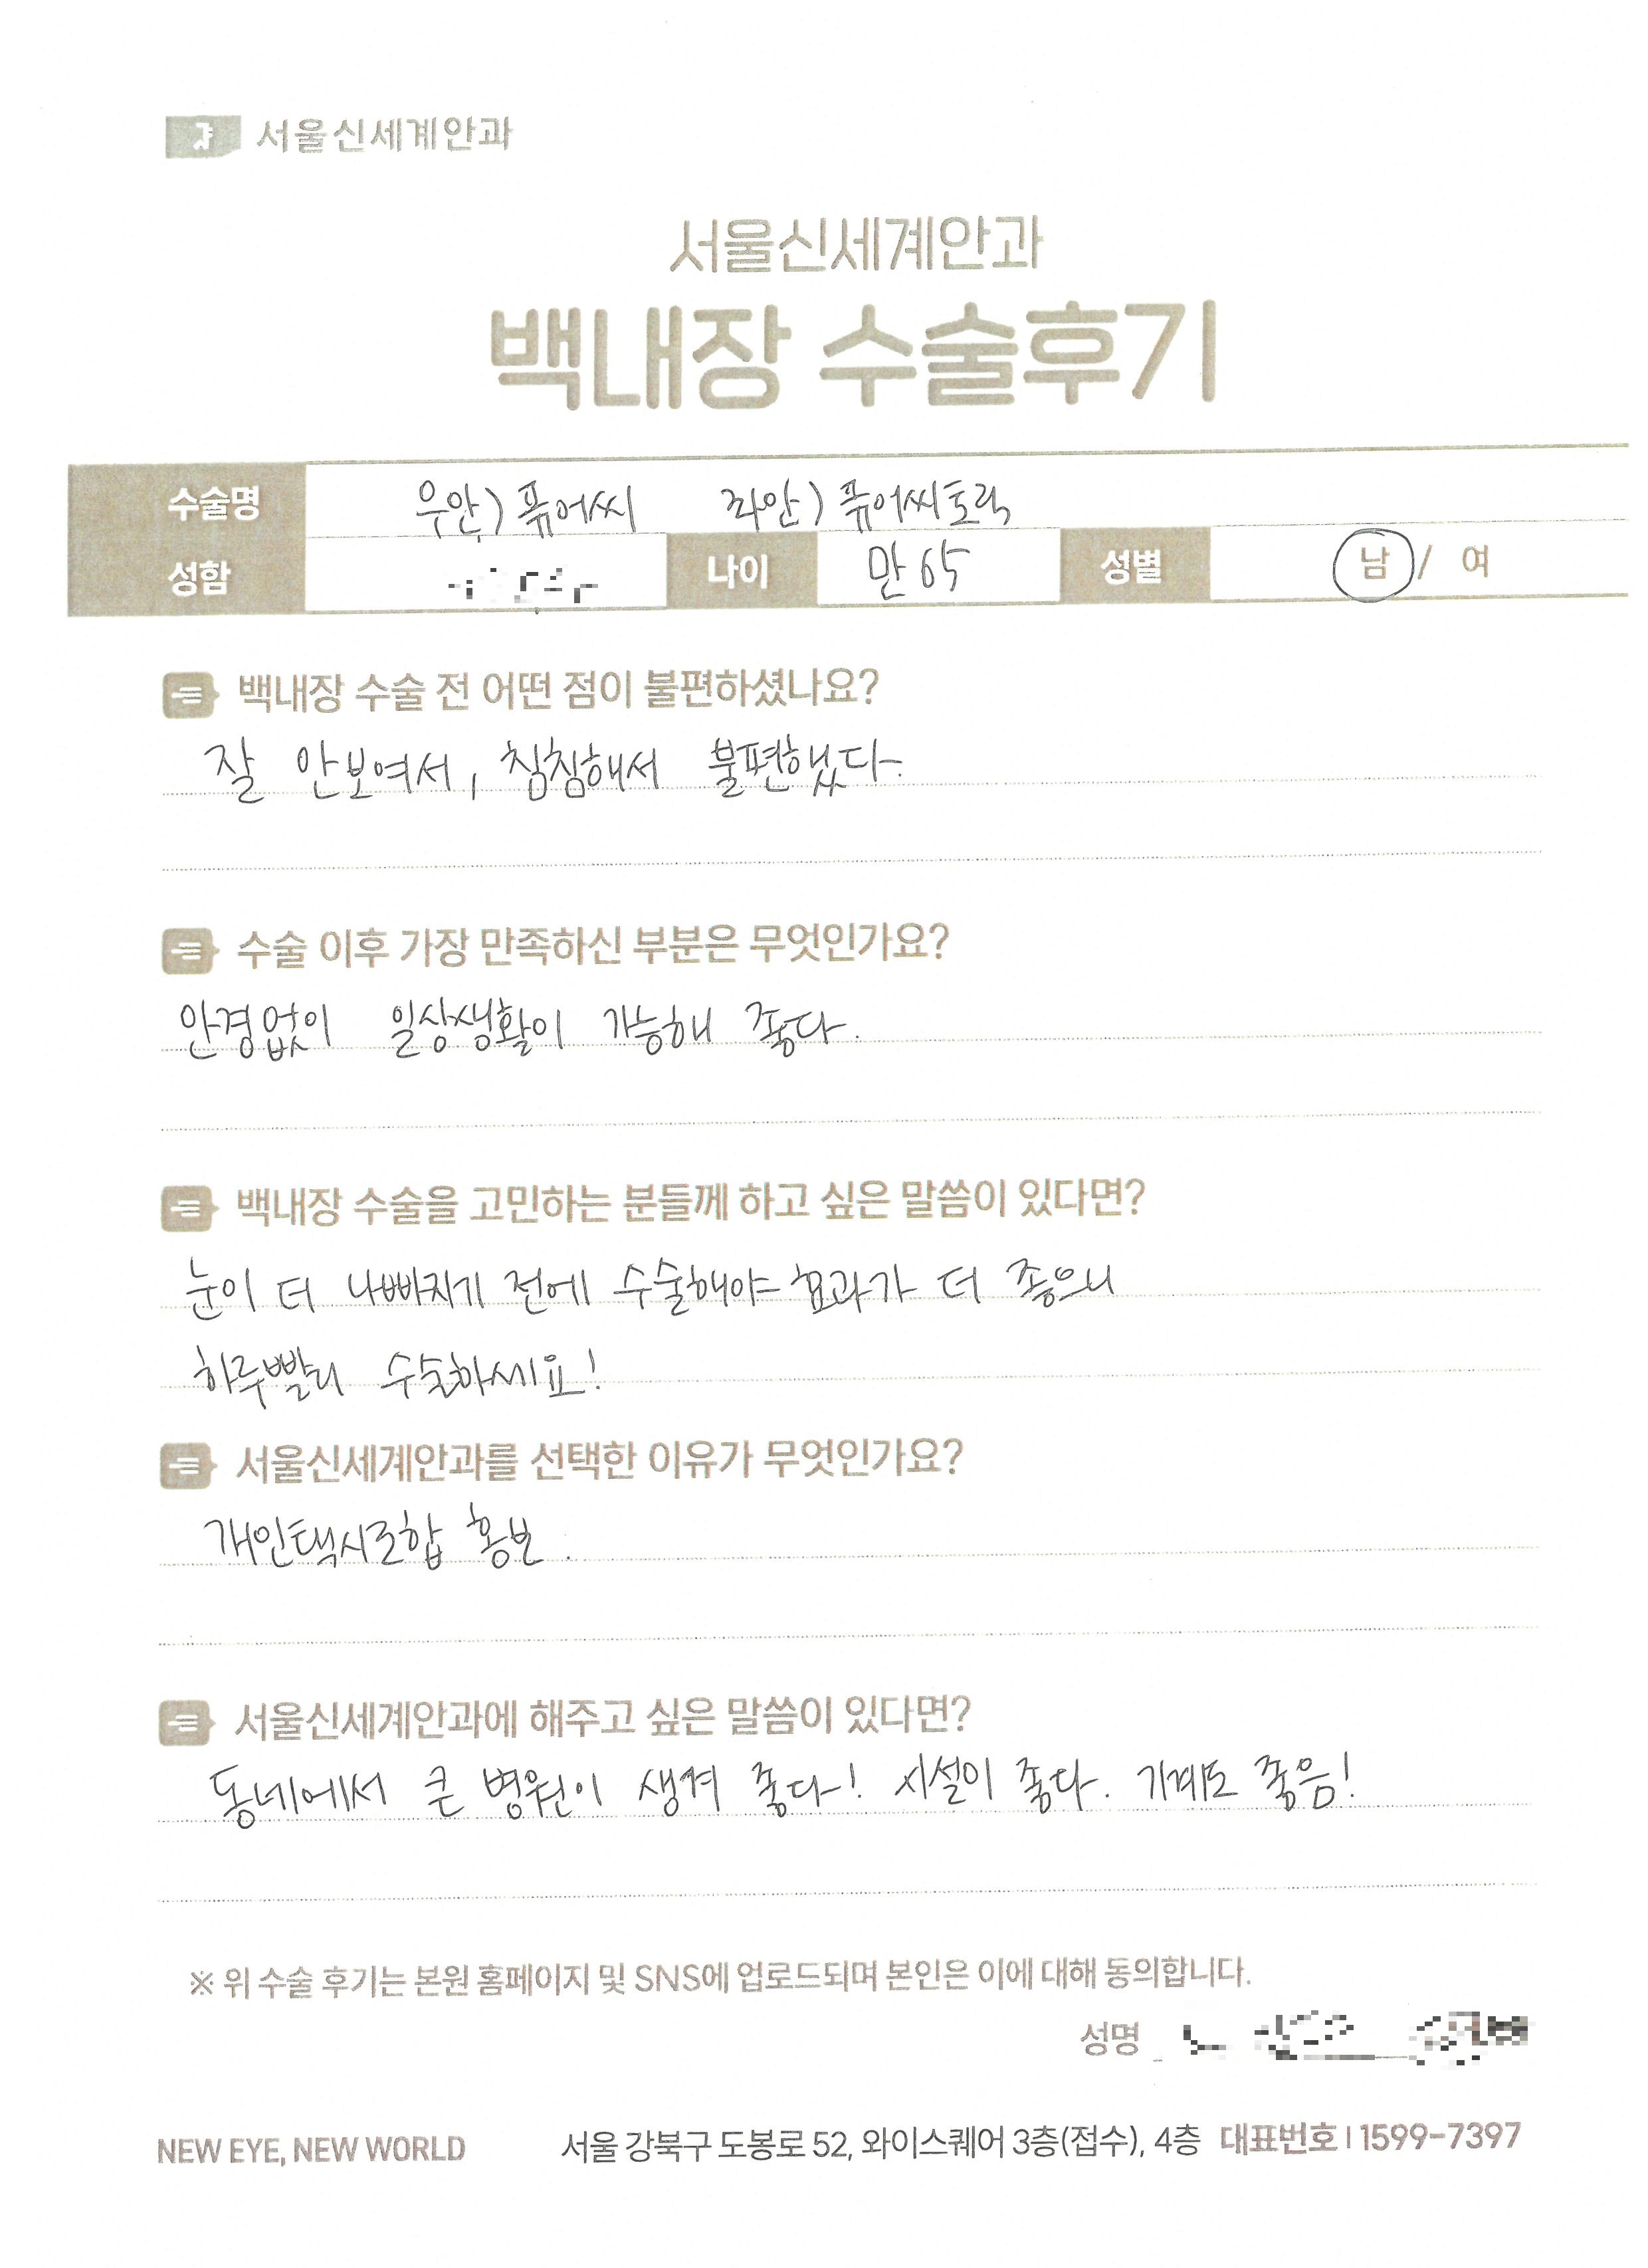 서울신세계안과
서울신세계안과
백내장 수술후기
수술명 우안) 퓨어씨 좌안) 퓨어씨토릭
성함 나이 만 65 성별 남 / 여
백내장 수술 전 어떤 점이 불편하셨나요?
잘 안보여서, 침침해서 불편했다.
수술 이후 가장 만족하신 부분은 무엇인가요?
안경없이 일상생활이 가능해 좋다.
백내장 수술을 고민하는 분들께 하고 싶은 말씀이 있다면?
눈이 더 나빠지기 전에 수술해야 효과가 더 좋으니
하루빨리 수술하세요!
서울신세계안과를 선택한 이유가 무엇인가요?
개인택시조합 홍보.
서울신세계안과에 해주고 싶은 말씀이 있다면?
동네에서 큰 병원이 생겨 좋다! 시설이 좋다. 기계도 좋음!
※ 위 수술 후기는 본원 홈페이지 및 SNS에 업로드되며 본인은 이에 대해 동의합니다.
성명
NEW EYE, NEW WORLD 서울 강북구 도봉로 52, 와이스퀘어 3층(접수), 4층 대표번호 | 1599-7397